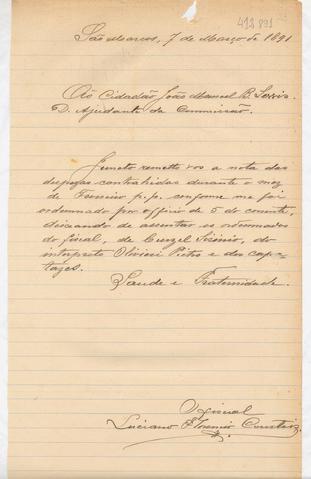 São Marcos, 7 de Março de 1891
Ao Cidadão João Manuel B.
D. Ajudante da Commissão.
Junto remetto vos a nota das
despezas contrahidas durante o mez
de Fevereiro p.p. conforme me foi
ordennado por officio de 5 do corrente,
deixando de assentar os ordennados
do fiscal, de, do
interprete Olivieri Pietro e dos capa-
tazes.
Saude e Fraternidade.
O fiscal
Luciano